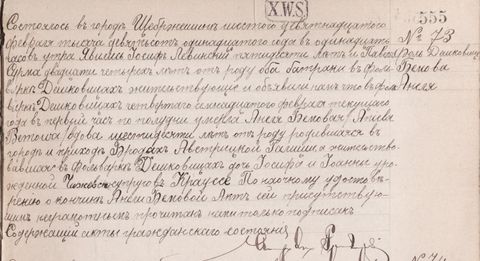 X.W.S.
555
Состоялось въ городѣ Щебржешинѣ шестого девятнадцатого
февраля тысяча девятьсотъ одинадцатого года въ одинадцать
часовъ утра. Явились Іосифъ Левинскій пятидесяти лѣтъ и Павелъ
двадцати четырехъ лѣтъ отъ роду оба батраки въ фоль-
варкѣ Дешковицахъ жительствующіе и объявили намъ что въ фоль-
варкѣ Дешковицахъ четвертаго семнадцатого февраля текущаго
года въ первый часъ по полудни умерла Анеля Бекова
вдова шестидесяти лѣтъ отъ роду родившаяся въ
городѣ и приходѣ Бродахъ Австрійской Галиціи а жительство-
вавшая въ фольваркѣ Дешковицахъ дочь Іосифа и Іоанны уро-
жденной супруговъ Краузе. По наочному удостовѣ-
ренію о кончинѣ Анели Бековой Актъ сей присутствую-
щимъ неграмотнымъ прочитанъ нами только подписанъ
Содержащій акты гражданскаго состоянія
№ 73
Фоль. Дешковицы
Бекова
Анеля